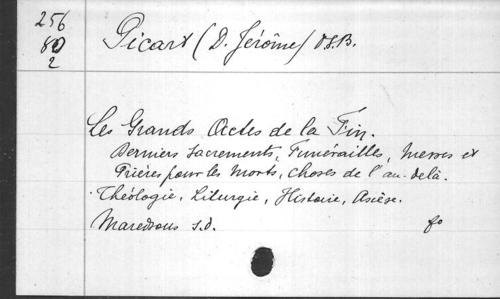 256
80
2
Picart (D. Jérôme) O.S.B.
Les Grands Actes de la Fin.
Derniers Sacrements, Funérailles, Messes et
Prières pour les Morts, Choses de l'au-delà.
Théologie, Liturgie, Histoire, Ascèse.
Maredsous s.d. fo